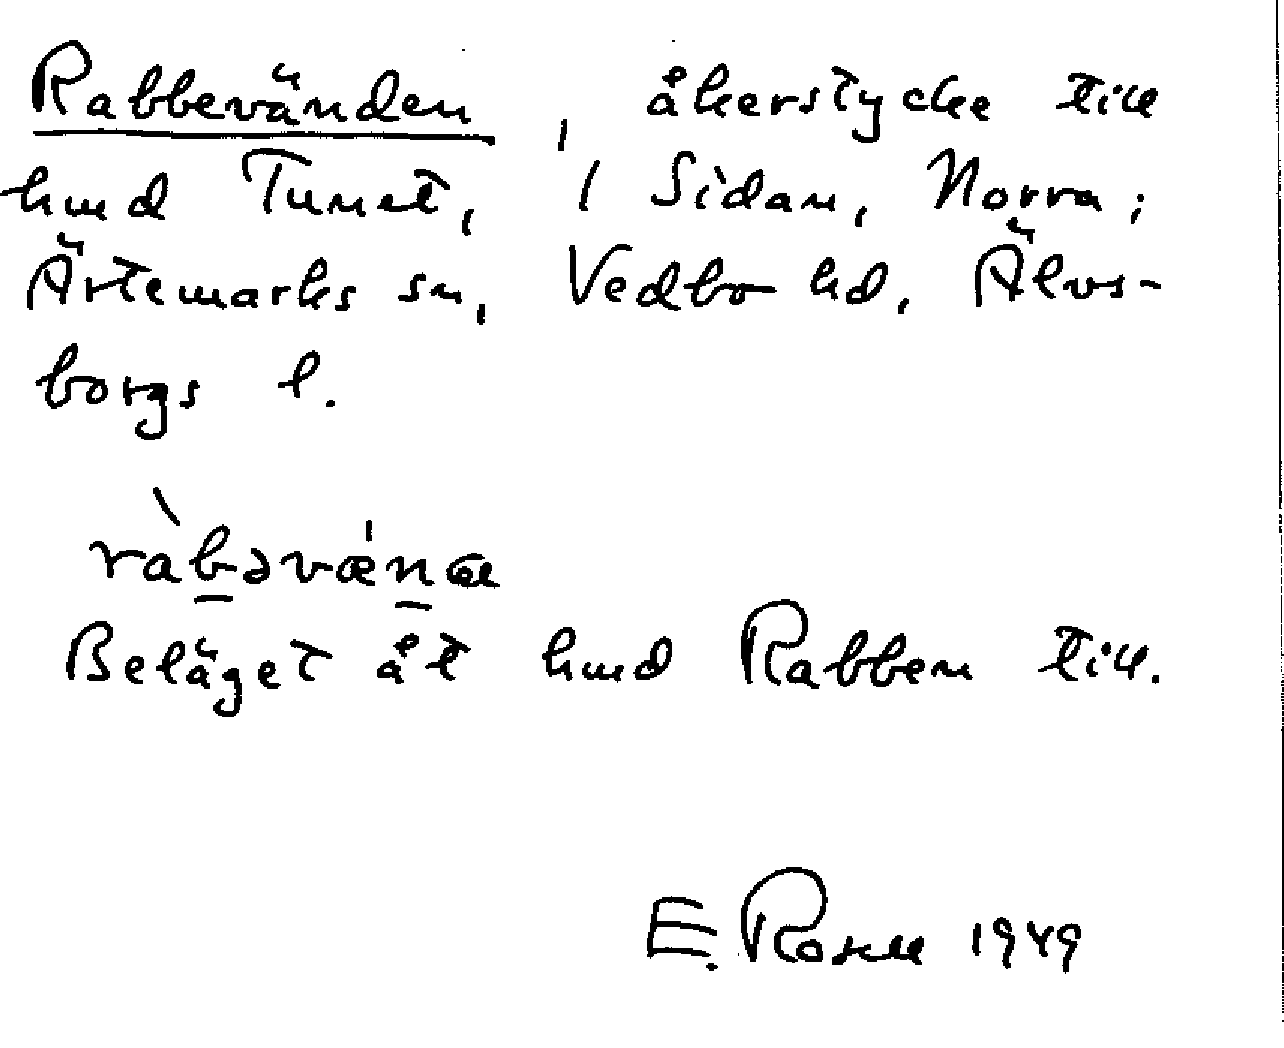 Rabbevänden, åkerstycke till
hmd Tunet, i Sidan, Norra;
Ärtemarks sn, Vedbo hd, Älvs-
borgs l.
ràbəvǽnæ
Beläget åt hmd Rabben till.
E. Rosell 1949